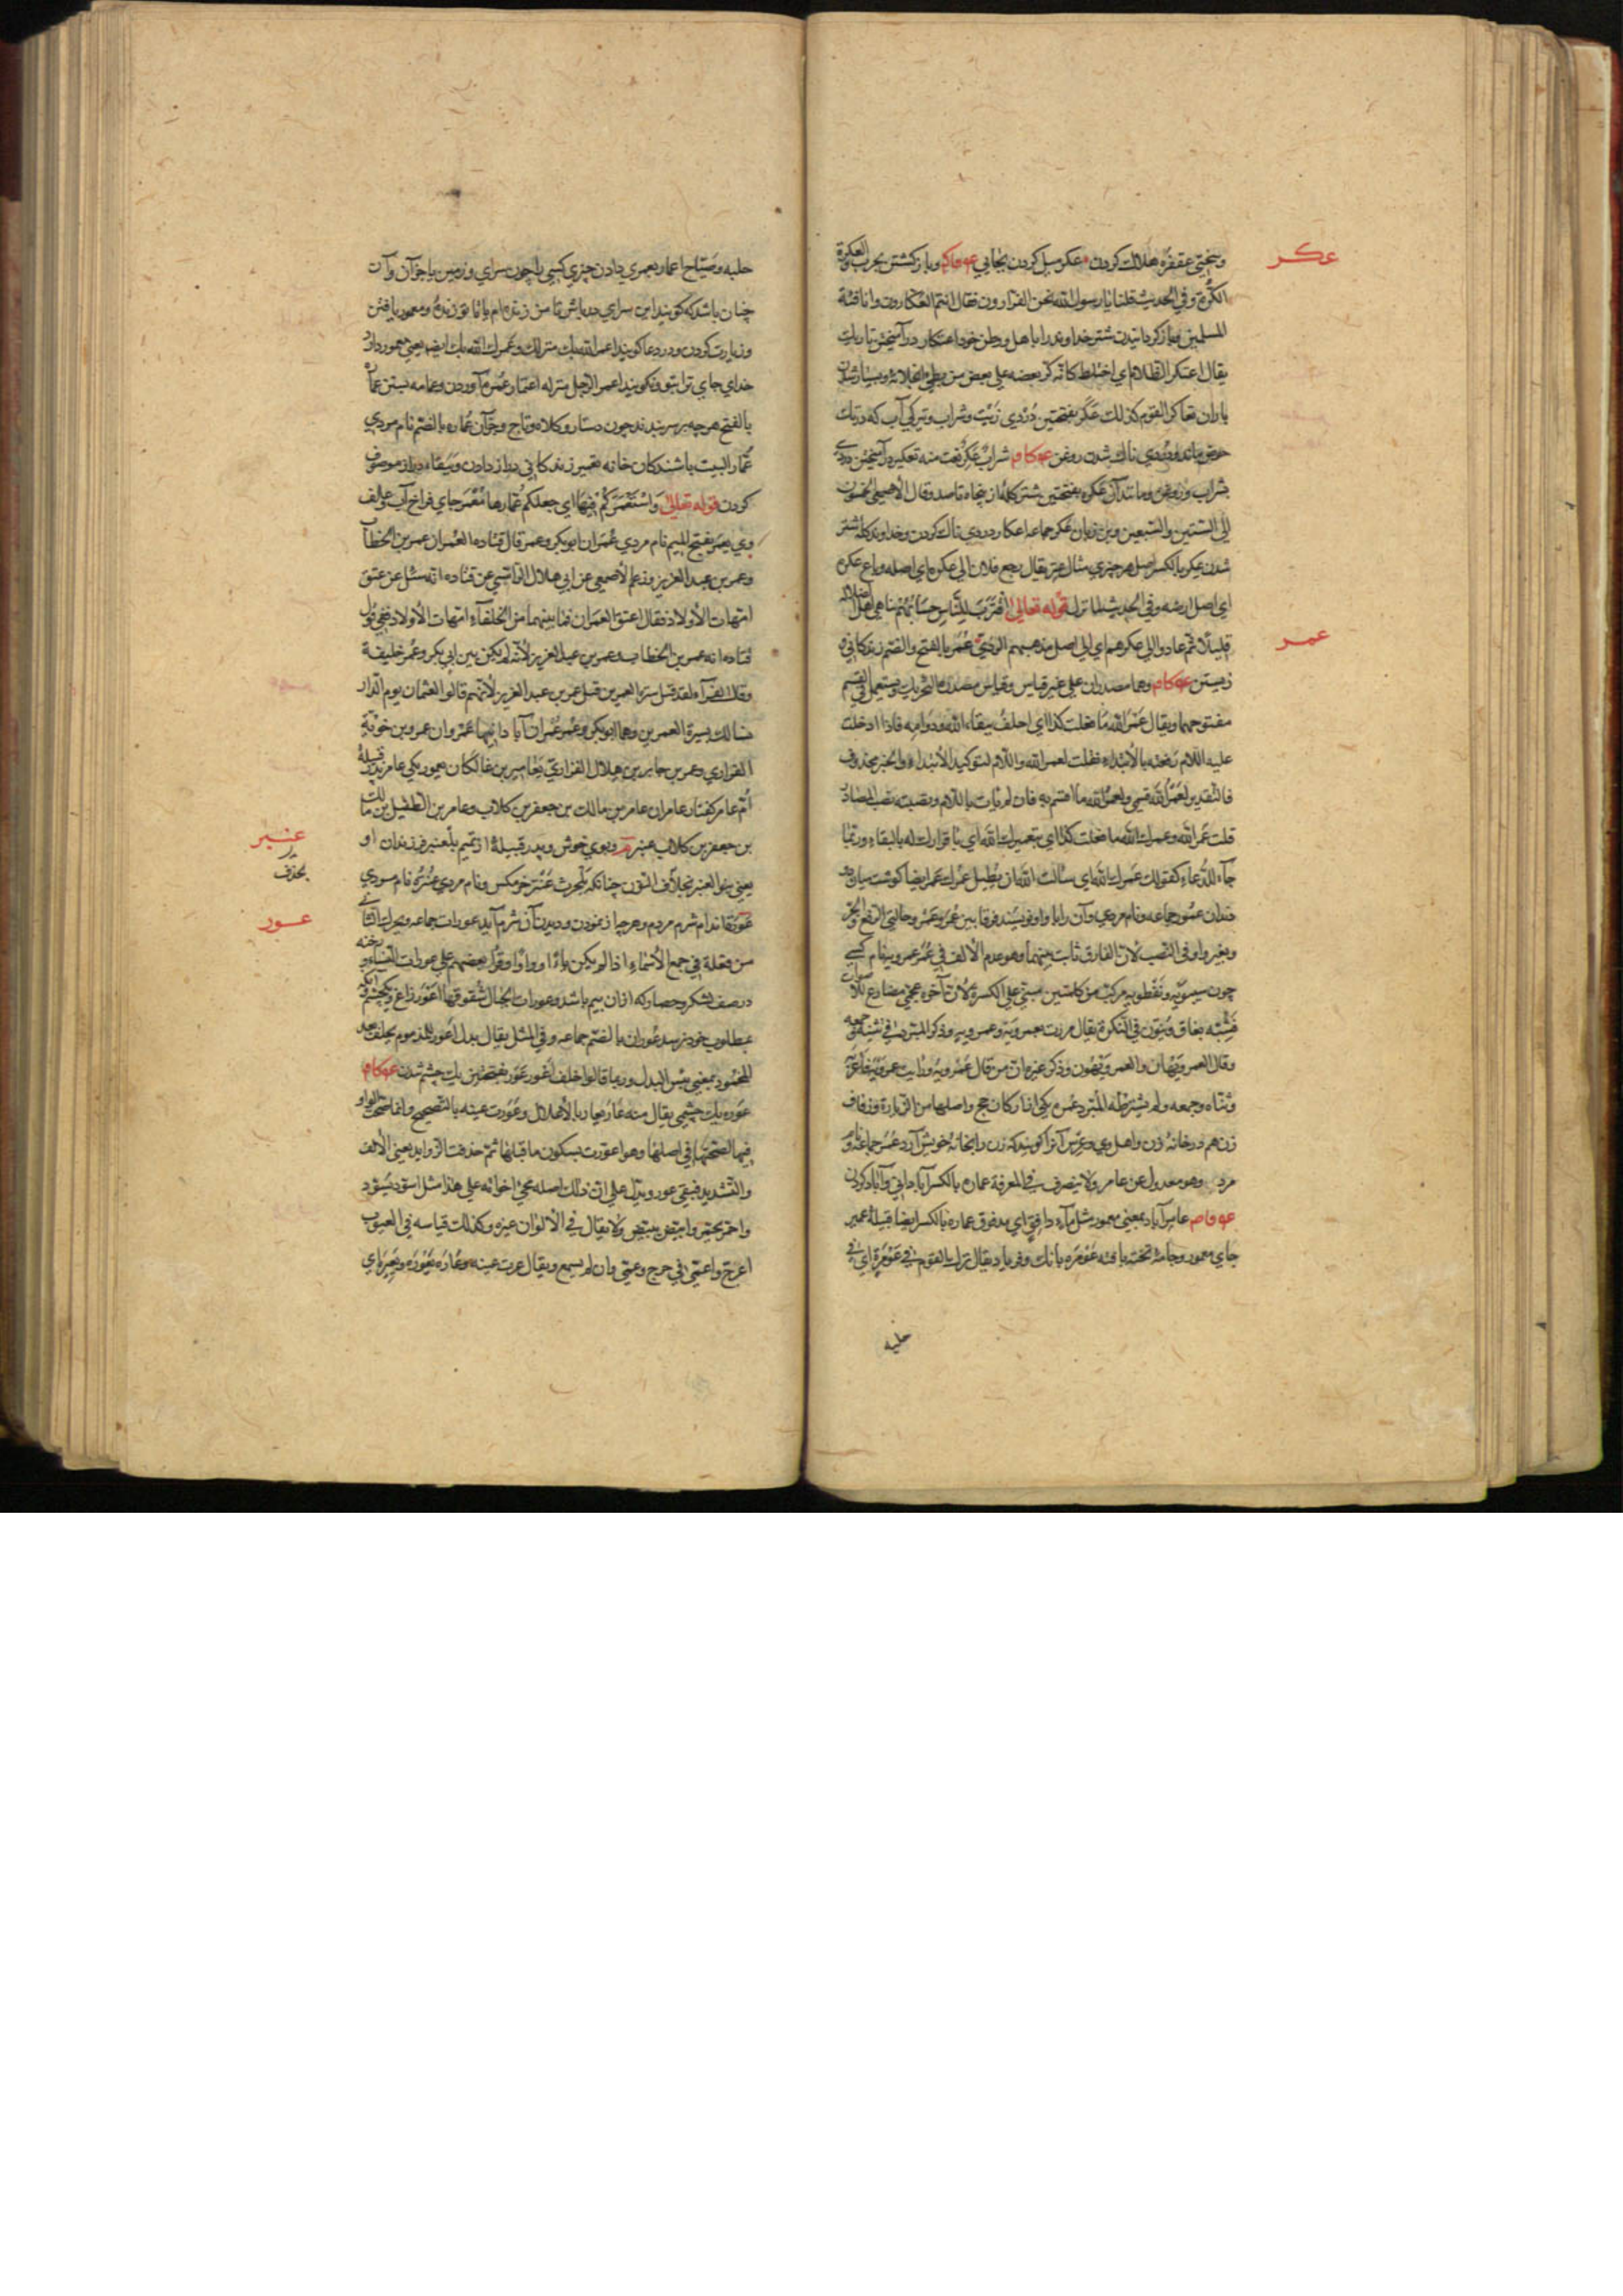 عكر
وسختی عقفره هلاك كردن عكر میل كردن بجایی و بازگشتن بحرب العكرة
الكرة وفي الحديث قلنا يا رسول الله نحن الفرارون فقال انتم العكارون وانا فئة
المسلمين و بازگردانیدن شتر خداوند را باهل و وطن خود اعتكار درآمیختن تاریك
يقال اعتكر الظلام اي اختلط كانه كر بعضه علي بعض من بطي انجلائه و بسیار شدن
یاران تعاكر القوم كذلك عكر بفتحتین دردی زیت و شراب و تیرگی آب كه در تك
حوض ماند و دردی ناك شدن روغن شراب عكر نعت منه تعكير درآمیختن دردی
بشراب و روغن و مانند آن عكرة بفتحتین شتر گله از پنجاه تا صد وقال الاصمعي الخمسون
الي الستين والسبعين عكر جماعه اعكار دردی ناك كردن و خداوند گله شتر
شدن عكر بالكسر اصل هر چیزی مثال عتر يقال رجع فلان الي عكره اي اصله وباع عكره
اي اصل ارضه وفي الحديث لما نزل قوله تعالی اقترب للناس حسابهم تناهي اهل الضلالة
عمر
قليلا ثم عادوا الي عكرهم اي الي اصل مذهبهم الردي عمر بالفتح والضم زندگانی و
زیستن وهما مصدران علي غير قياس وقياس مصدره بالتحريك ويستعمل في القسم
مفتوحهما ويقال عمر الله ما فعلت كذا اي احلف ببقاء الله ودوامه فاذا ادخلت
عليه اللام رفعته بالابتداء فقلت لعمر الله واللام لتوكيد الابتداء والخبر محذوف
فالتقدير لعمر الله قسمي ولعمر الله ما اقسم به فان لم تات باللام ونصبته نصب المصادر
قلت عمر الله وعمرك الله ما فعلت كذا اي بتعميرك الله اي باقرارك له بالبقاء وربما
جاء للدعاء كقولك عمرك الله اي سالت الله ان يطيل عمرك عمر ايضا گوشت میان دو
دندان عمور جماعه و نام مردی و آن را با واو نویسند فرقا بين عمر وعمر و حالتي الرفع والجر
وبغير واو في النصب لان الفارق ثابت بينهما وهو عدم الالف في عمر عمرويه نام كسی
چون سيبويه ونفطويه مركب من كلمتين مبني علي الكسر لان آخره عجمي مضارع للاصوات
فشبه بغاق وينون في النكرة يقال مررت بعمرويه وعمرويه وذكر المبرد في تثنيته وجمعه
وقال العمرويهان والعمرويهون وذكر غيره ان من قال عمرويه ورايت عمرويه فاعربه
وثناه وجمعه ولم يشرطه المبرد عمره یكی از اركان حج واصلها من الزيارة وزفاف
زن هم در خانهٔ زن و اهل وی و عرس آنرا گویند كه زن را بخانهٔ خویش آرد عمر جماعه و نام
مرد وهو معدول عن عامر ولا ينصرف في المعرفة عماره بالكسر آبادانی و آباد كردن
عامر آباد بمعنی معمور مثل ماء دافق اي مدفوق عماره بالكسر ايضا قبيله عمير
جای معمور و جامهٔ سخت بافته عومره بانگ و فریاد يقال ترك القوم في عومرة اي في
حلبه
حلبه وصياح اعمار بعمری دادن چیزی كسی را چون سرای و زمین یا جز آن و آن
چنان باشد كه گویند این سرای مر ترا باش تا من زنده ام یا تا تو زندهٔ و معمور یافتن
و زیارت كردن و در دعا گویند اعمر الله بك منزلك وعمرك الله بك ايضا یعنی معمور داراد
خدای جای ترا بتو و نگویند اعمر الرجل منزله اعتمار عمره آوردن و عمامه بستن عمار
بالفتح هرچه بر سر بندند چون دستار و كلاه و تاج و جز آن عماره بالضم نام مردی
عمار البيت باشندگان خانه تعمير زندگانی دراز دادن و ببقاء دراز موصوف
كردن قوله تعالی واستعمركم فيها اي جعلكم عمارها معمر جای فراخ آب و علف
وی معمر بفتح الميم نام مردی عمران ابو بكر وعمر قال قتاده العمران عمر بن الخطاب
وعمر بن عبد العزيز وزعم الاصمعي عن ابي هلال الراسبي عن قتاده انه سئل عن عتق
امهات الاولاد فقال اعتق العمران فما بينهما من الخلفاء امهات الاولاد ففي قول
قتاده انه عمر بن الخطاب وعمر بن عبد العزيز لانه لم يكن بين ابي بكر وعمر خليفة
وقال الفراء لقد قيل سيرة العمرين قبل عمر بن عبد العزيز لانهم قالوا لعثمان يوم الدار
نسالك سيرة العمرين وهما ابو بكر وعمر عمران آبادانيها عمروان عمرو بن جوية
الفزاري وعمرو بن جابر بن هلال الفزاري عامر یكی عامر پدر قبيلهٔ
ام عامر كفتار عامران عامر بن مالك بن جعفر بن كلاب وعامر بن الطفيل بن مالك
عنبر
بن جعفر بن كلاب عنبر بوی خوش و پدر قبيلهٔ از تميم بلعنبر فرزندان او
بحذف
یعنی بنو العنبر بحذف النون چنانكه بلحرث عنتر خرمگس و نام مردی عنتره نام مردی
عور
عورة اندام شرم مردم و هرچه از نمودن و دیدن آن شرم آید عورات جماعه ويحرك الثاني
من فعلة في جمع الاسماء اذا لم يكن ياء او واوا وقرا بعضهم علي عورات النساء و رخنه
در صف لشكر و حصار كه ازان بیم باشد و عورات الجبال شقوقها اعور زاغ و یكچشم و آنكه
بمطلوب خود نرسد عوران بالضم جماعه وفي المثل يقال بدل اعور للمذموم يخلف بعد
المحمود بمعنی بئس البدل وربما قالوا خلف اعور عور بفتحتین یك چشم شدن
عوره یك چشمی يقال منه عار يعار بالاعلال وعورت عينه بالتصحيح وانما صحت الواو
فيها لصحتها في اصلها وهو اعورت بسكون ما قبلها ثم حذفت الزوايد يعني الالف
والتشديد فبقي عور ويدل علي ان ذلك اصله مجيء اخواته علي هذا مثل اسود يسود
واحمر يحمر وابيض يبيض ولا يقال في الالوان غيره وكذلك قياسه في العيوب
اعرج واعمي في عرج وعمي وان لم يسمع ويقال عرت عينه وعاره يعوره ويعيره اي